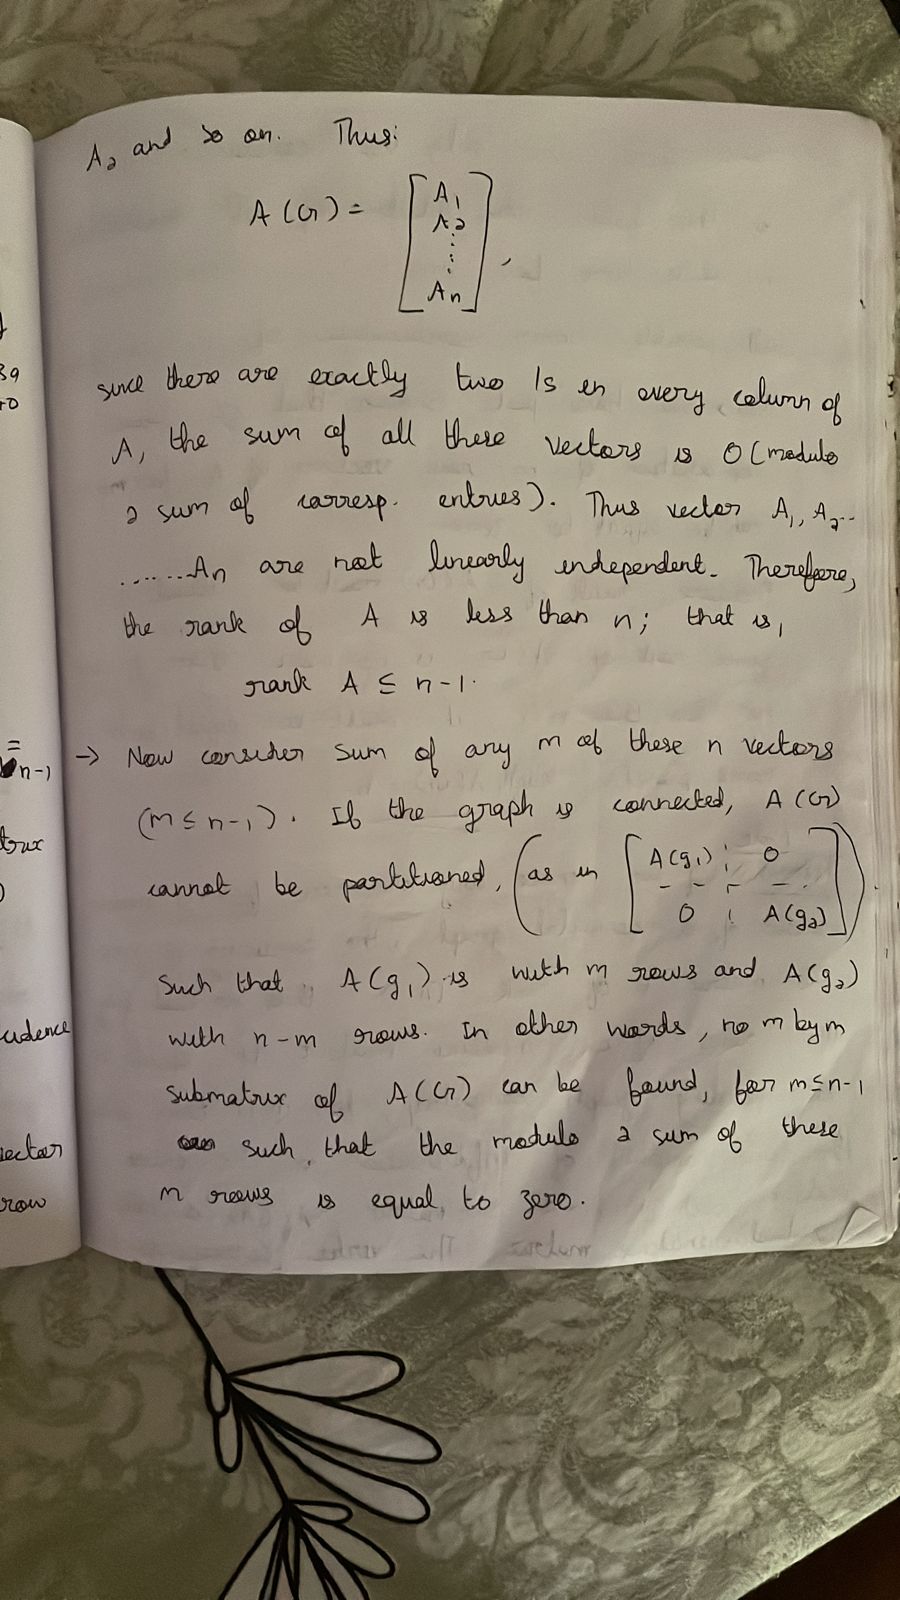 A2 and so on. Thus:
A(G) = [ A1
A2
⋮
An ],
since there are exactly two 1s in every column of
A, the sum of all these vectors is 0 (modulo
2 sum of corresp. entries). Thus vector A1, A2--
.......An are not linearly independent. Therefore,
the rank of A is less than n; that is,
rank A ≤ n-1.
→ Now consider sum of any m of these n vectors
(m ≤ n-1). If the graph is connected, A(G)
cannot be partitioned, (as in [ A(g1) ¦ 0
0 ¦ A(g2) ]).
Such that A(g1) is with m rows and A(g2)
with n-m rows. In other words, no m by m
submatrix of A(G) can be found, for m≤n-1
such that the modulo 2 sum of these
m rows is equal to zero.
=
n-1
row